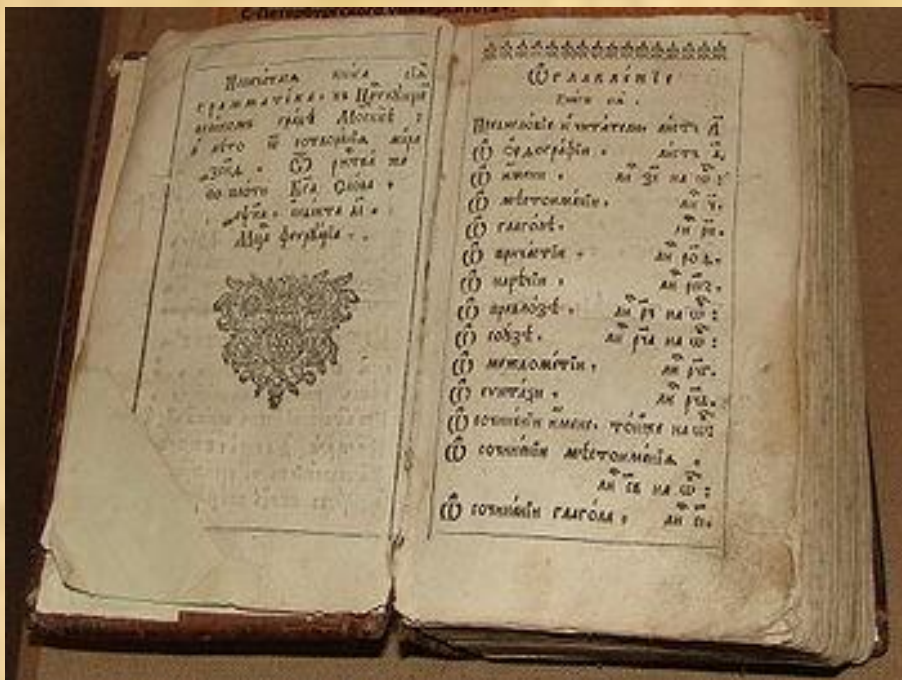 С-Петербургского университета
книга сїѧ
грамматїка, въ
великомъ градѣ Москвѣ :
в лѣто ѿ сотворенїѧ мїра
Ѿ рж҃тва же
по плоти Бг҃а Слова ,
҂аѱк҃а . їндїкта д҃і .
Мц҃а феврꙋарїа . .
Ѡглавленїе
книги сеѧ .
Предисловїе къ читателю, листъ а҃
Ѡ орѳографїи , листъ
Ѡ имени , ли на ѿ :
Ѡ мѣстоименїи , ли
Ѡ глаголѣ , ли
Ѡ причастїи , ли
Ѡ нарѣчїи , ли
Ѡ предлозѣ , ли на ѿ :
Ѡ союзѣ , ли на ѿ :
Ѡ междометїи , ли
Ѡ сѵнтаѯи , ли
Ѡ сочиненїи имене, тойже на ѿ :
Ѡ сочиненїи мѣстоименїѧ ,
ли на ѿ :
Ѡ сочиненїи глагола , ли